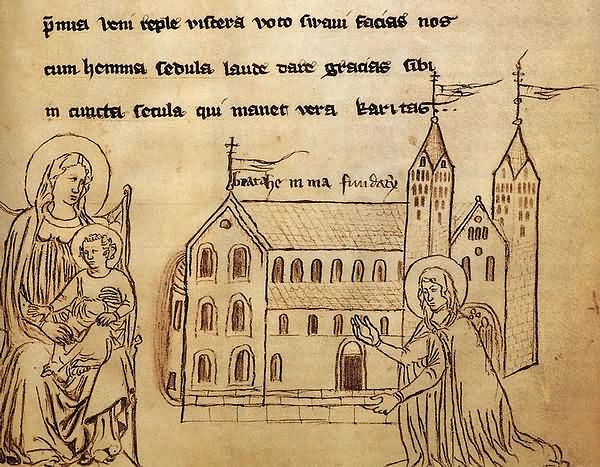 p̄mia veni reple viscera voto swavi facias nos
cum hemma sedula laude dare gracias sibi
in cuncta secula qui manet vera karitas
beata hemma